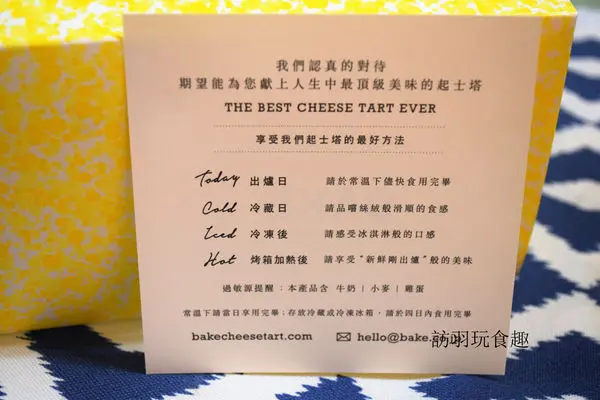 我們認真的對待
期望能為您獻上人生中最頂級美味的起士塔
THE BEST CHEESE TART EVER
享受我們起士塔的最好方法
Today 出爐日 請於常溫下儘快食用完畢
Cold 冷藏日 請品嚐絲絨般滑順的食感
Iced 冷凍後 請感受冰淇淋般的口感
Hot 烤箱加熱後 請享受"新鮮剛出爐"般的美味
過敏源提醒：本產品含 牛奶 | 小麥 | 雞蛋
常溫下請當日享用完畢；存放冷藏或冷凍冰箱，請於四日內食用完畢
bakecheesetart.com hello@bake.co.jp
訪羽玩食趣